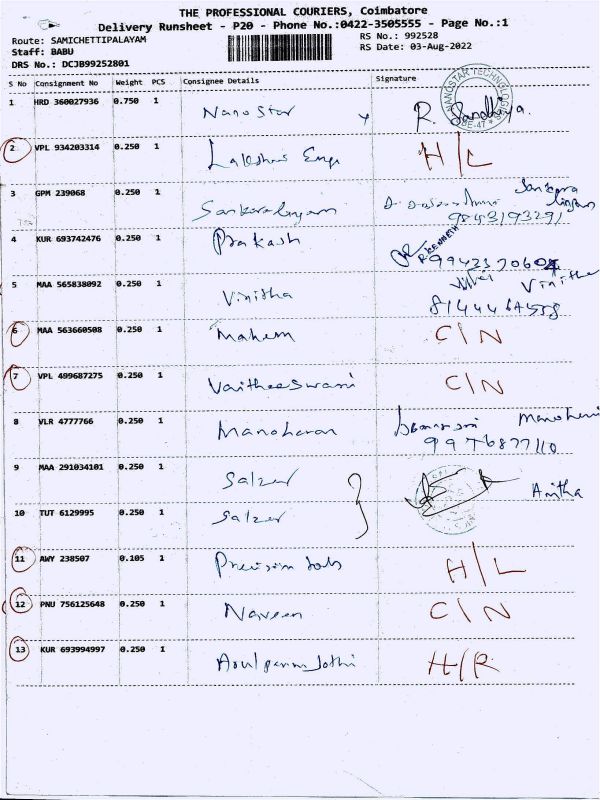 THE PROFESSIONAL COURIERS, Coimbatore
Delivery Runsheet - P20 - Phone No.:0422-3505555 - Page No.:1
Route: SAMICHETTIPALAYAM RS No.: 992528
Staff: BABU RS Date: 03-Aug-2022
DRS No.: DCJB99252801
S No Consignment No Weight PCS Consignee Details Signature
1 HRD 360027936 0.750 1 Nanostar R. Sandhiya.
NANOSTAR TECHNOLOGIES
2 VPL 934203314 0.250 1 H/L
3 GPM 239068 0.250 1 Sankaralingam Sankara lingam
9843193291
4 KUR 693742476 0.250 1 Prakash
5 MAA 565838092 0.250 1 Vinitha Vinitha
6 MAA 563660508 0.250 1 Mahem C/N
7 VPL 499687275 0.250 1 Vaitheeswari C/N
8 VLR 4777766 0.250 1 Manoharan
9976877110
9 MAA 291034101 0.250 1 Salzer Anitha
10 TUT 6129995 0.250 1 Salzer
11 AWY 238507 0.105 1 Precision H/L
12 PNU 756125648 0.250 1 Naveen C/N
13 KUR 693994997 0.250 1 H/R